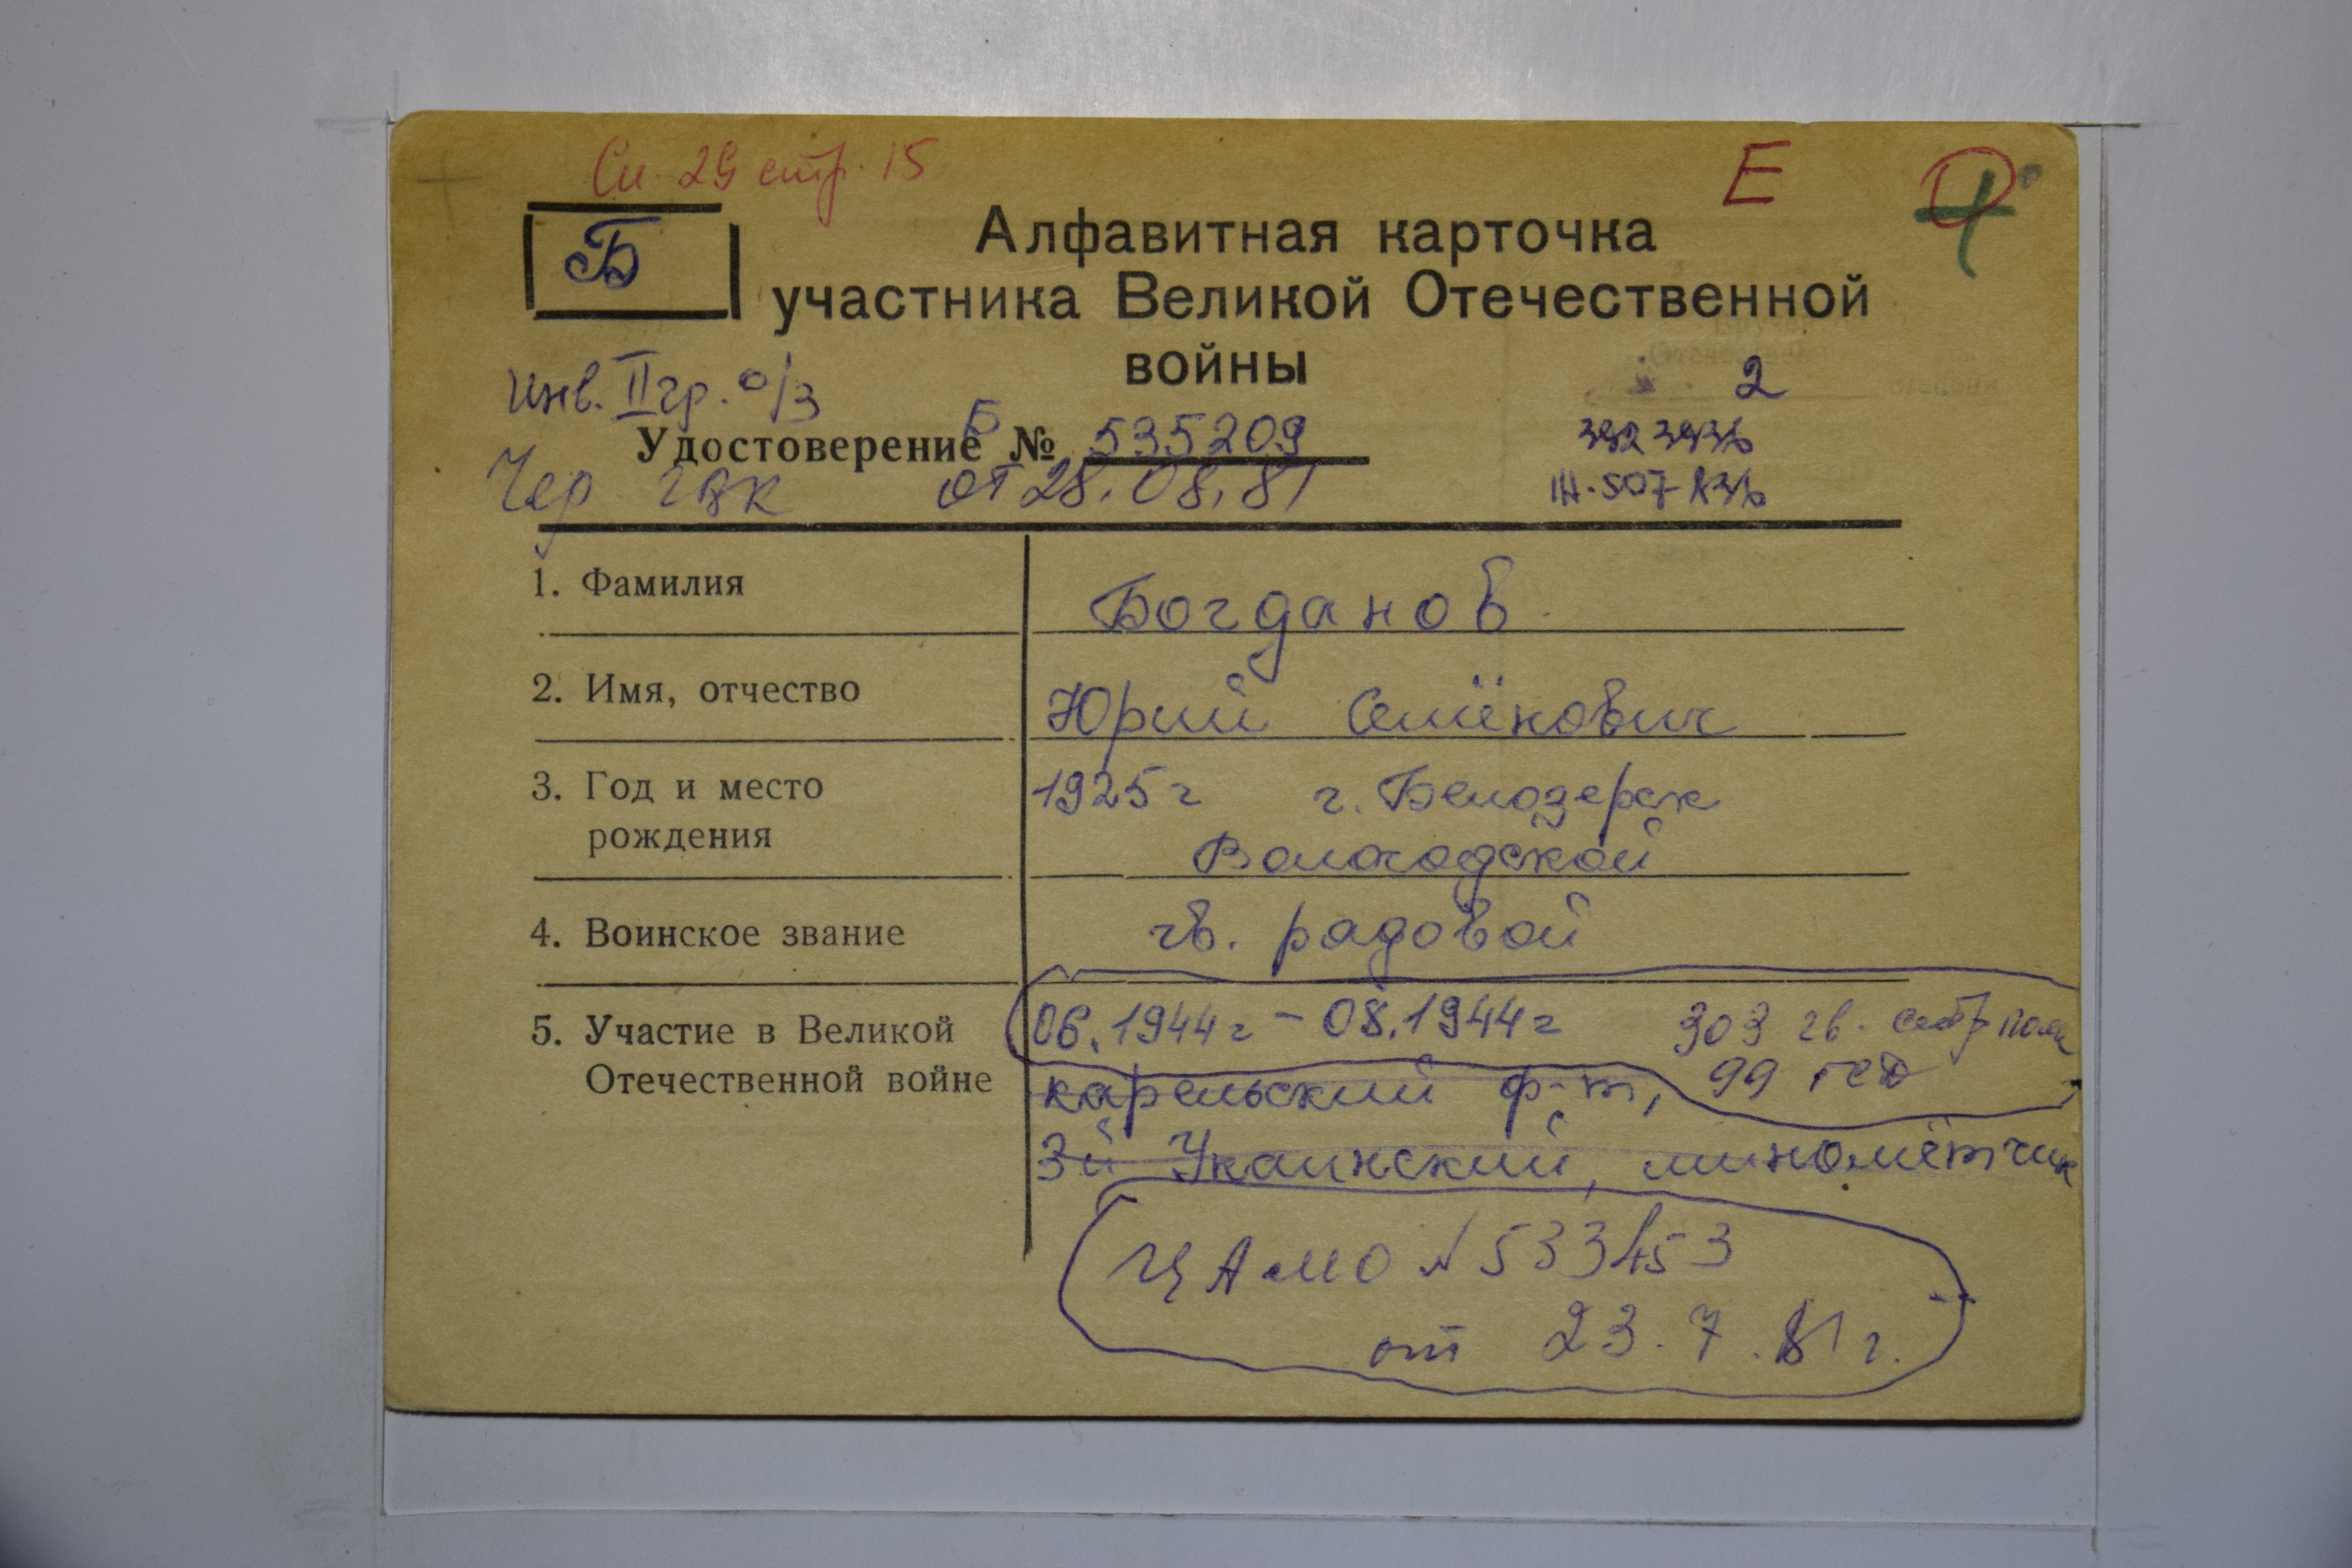 Сп. 29 стр. 15
Е
Б
Алфавитная карточка
участника Великой Отечественной
войны
Инв. II гр. о/з
2
Удостоверение Б № 535209
Чер. ГВК от 28.08.81
1. Фамилия Богданов
2. Имя, отчество Юрий Семёнович
3. Год и место 1925 г г. Белозерск
рождения Вологодской
4. Воинское звание гв. рядовой
5. Участие в Великой 06.1944 г – 08.1944 г 303 гв. стр полк
Отечественной войне карельский ф-т, 99 гсд
3й Укаинский, миномётчик
ЦАМО № 533453
от 23.7.81 г.